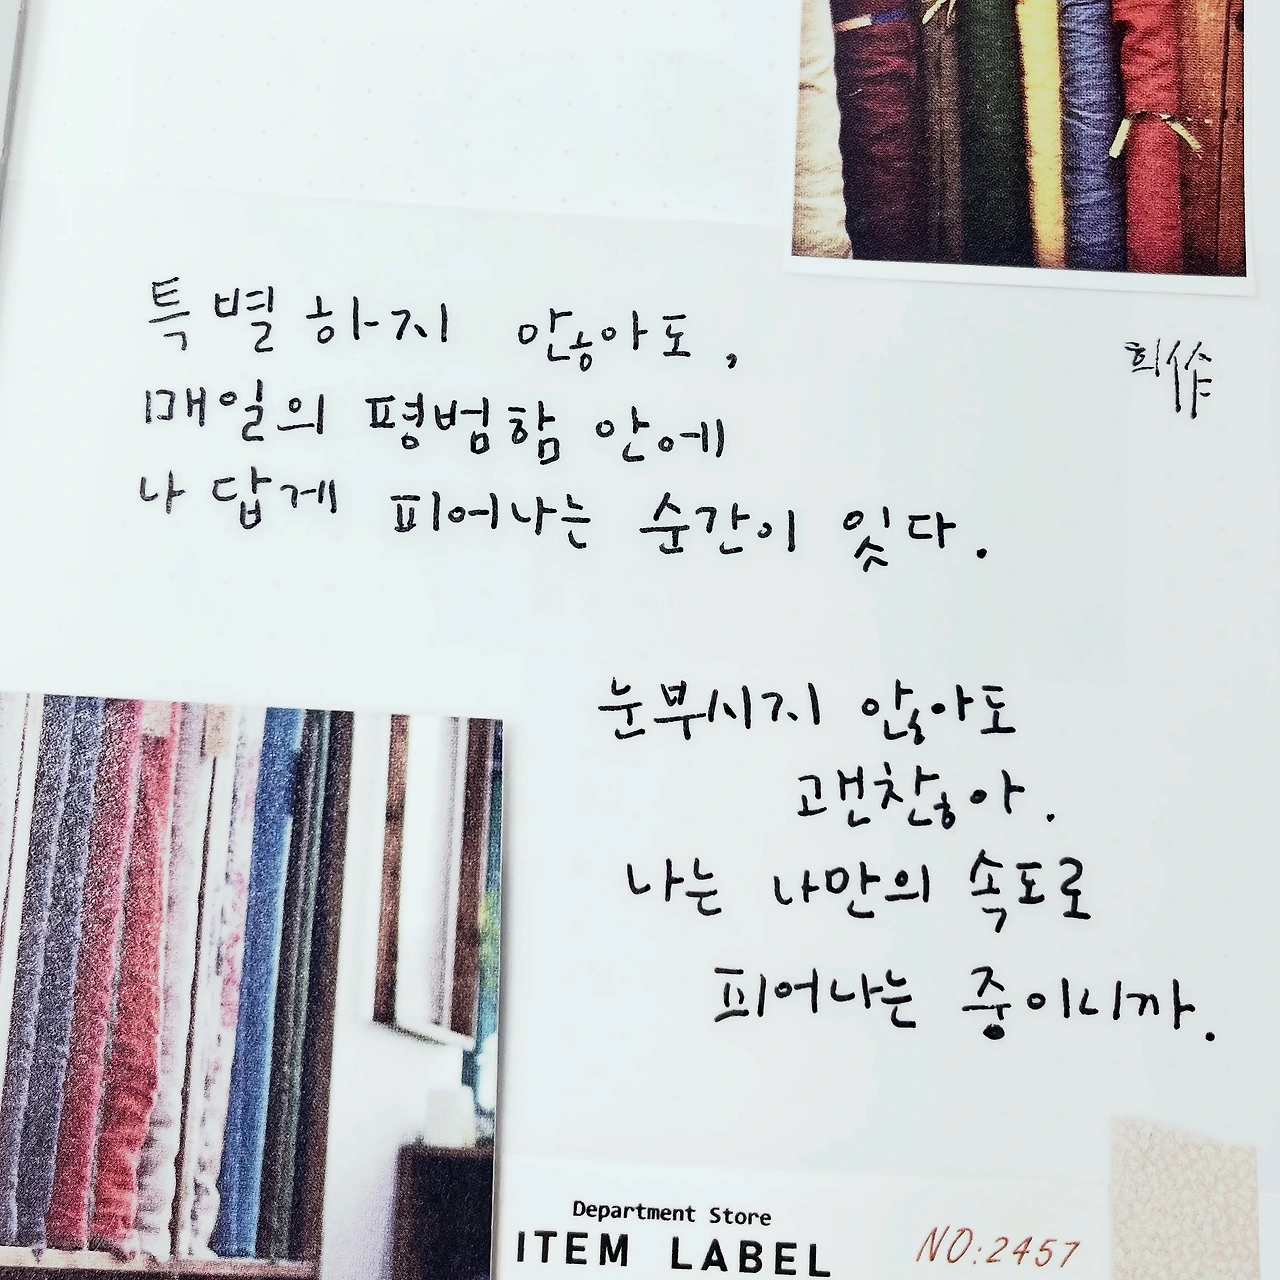 특별하지 않아도,
희作
매일의 평범함 안에
나 답게 피어나는 순간이 잇다.
눈부시지 않아도
괜찮아.
나는 나만의 속도로
피어나는 중이니까.
Department Store
ITEM LABEL
NO:2457